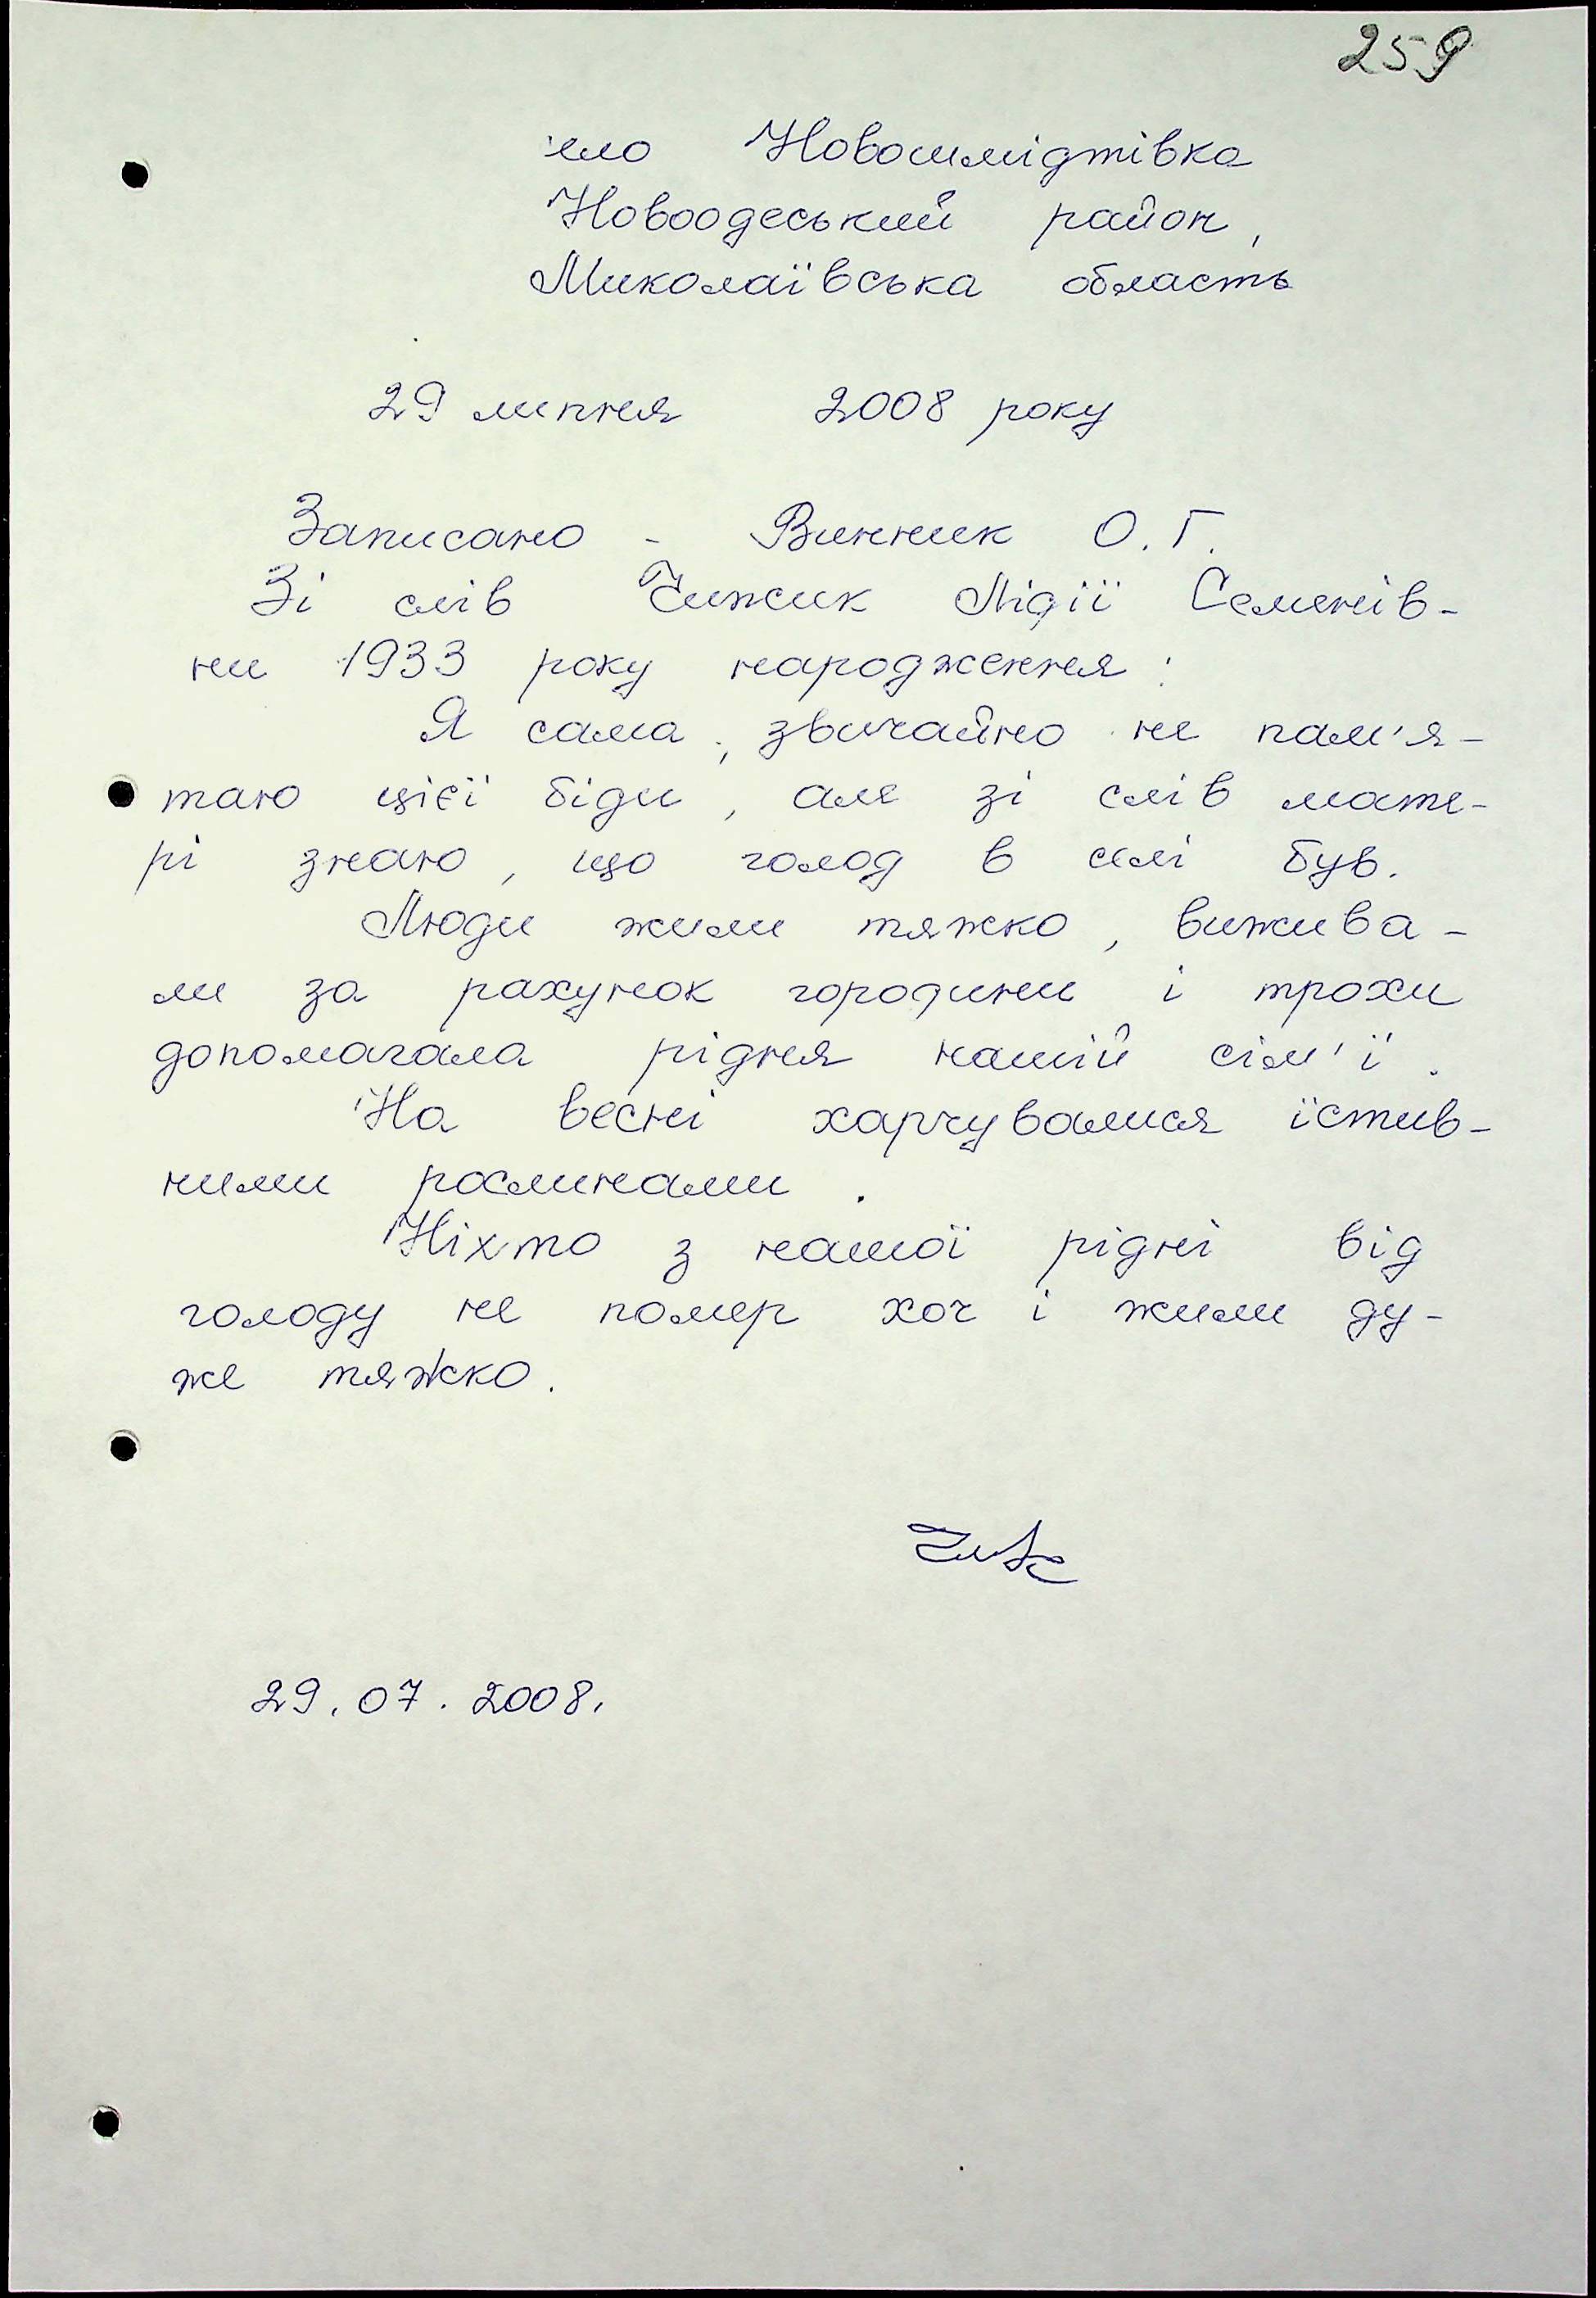 259
село Новошмідтівка
Новоодеський район,
Миколаївська область
29 липня 2008 року
Записано - Винник О. Г.
Зі слів Чижик Лідії Семенів-
ни 1933 року народження:
Я сама, звичайно не пам'я-
таю цієї біди, але зі слів мате-
рі знаю, що голод в селі був.
Люди жили тяжко, вижива-
ли за рахунок городини і трохи
допомагала рідня нашій сім'ї.
На весні харчувалися їстив-
ними рослинами.
Ніхто з нашої рідні від
голоду не помер хоч і жили ду-
же тяжко.
29.07.2008.